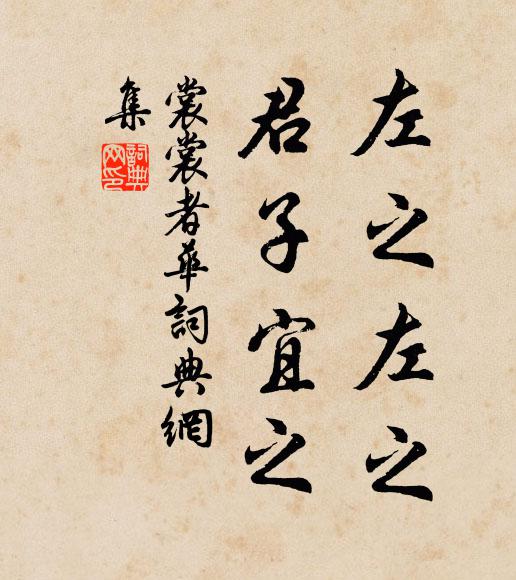 左之左之
君子宜之
裳裳者華詞典網
集
詞典
网印